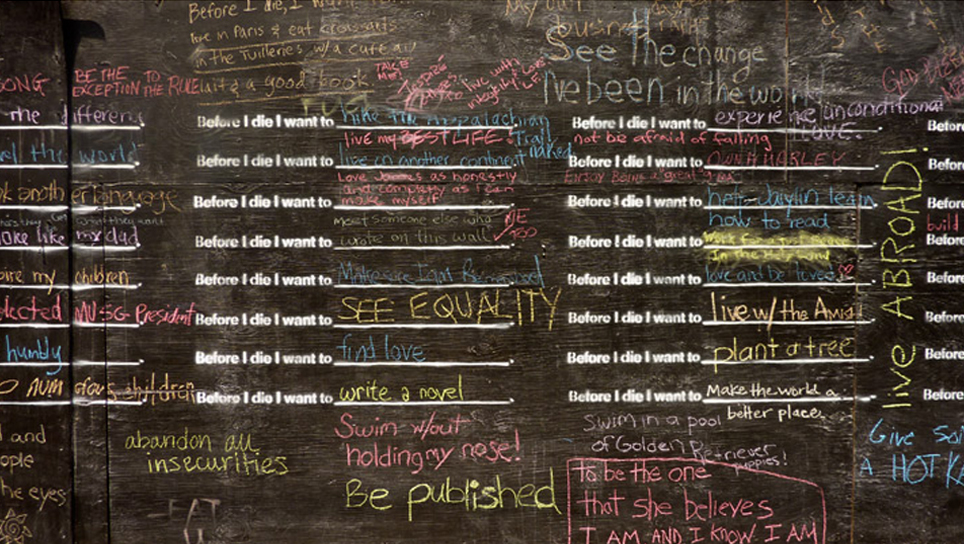 Before I die, I want
live in Paris & eat croissants
in the Tuilleries w/ a cute
with a good book
My out
business
See the change
I've been in the world
SONG
BE THE
EXCEPTION TO
THE RULE
TAKE
ME!
integrity
LOVE
GOD
the difference
Before I die I want to hike the Appalachian
Trail
naked
live my BEST LIFE.
Before I die I want to experience unconditional
LOVE.
not be afraid of falling
Before
the world
Before I die I want to live on another continent
Before I die I want to OWN A HARLEY
Enjoy Being a great
Before
another language
Before I die I want to
Love as honestly
and completely as I can
make myself
Before I die I want to help Jaylin learn
how to read
Before
what they want
like my dad
Before I die I want to
meet someone else who
wrote on this wall
ME
TOO
Before I die I want to
In the
build
Before
my children
Before I die I want to Make sure I am Remembered
Before I die I want to love and be loved
Before
elected MUSG President
Before I die I want to SEE EQUALITY
Before I die I want to live w/ the Amish
Before
humbly
Before I die I want to find love
Before I die I want to plant a tree
Before
children
Before I die I want to write a novel
Before I die I want to Make the world a
better place.
Before
live ABROAD!
and
the eyes
abandon all
insecurities
EAT
Swim w/out
holding my nose!
Be published
Swim in a pool
of Golden Retriever
puppies!
To be the one
that she believes
I AM AND I KNOW I AM
Give
A HOT